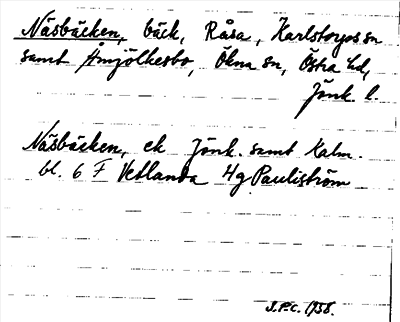 Näsbäcken, bäck, Råsa, Karlstorps sn
samt Åmjölkesbo, Ökna sn, Östra hd,
Jönk. l.
Näsbäcken, ek Jönk. samt Kalm.
bl. 6 F Vetlanda 4g Pauliström
J.P.C. 1938.